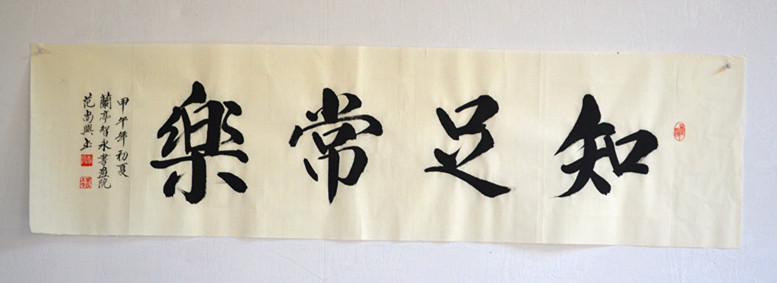 知足常樂
甲午年初夏
蘭亭智永書畫院
范尚興書